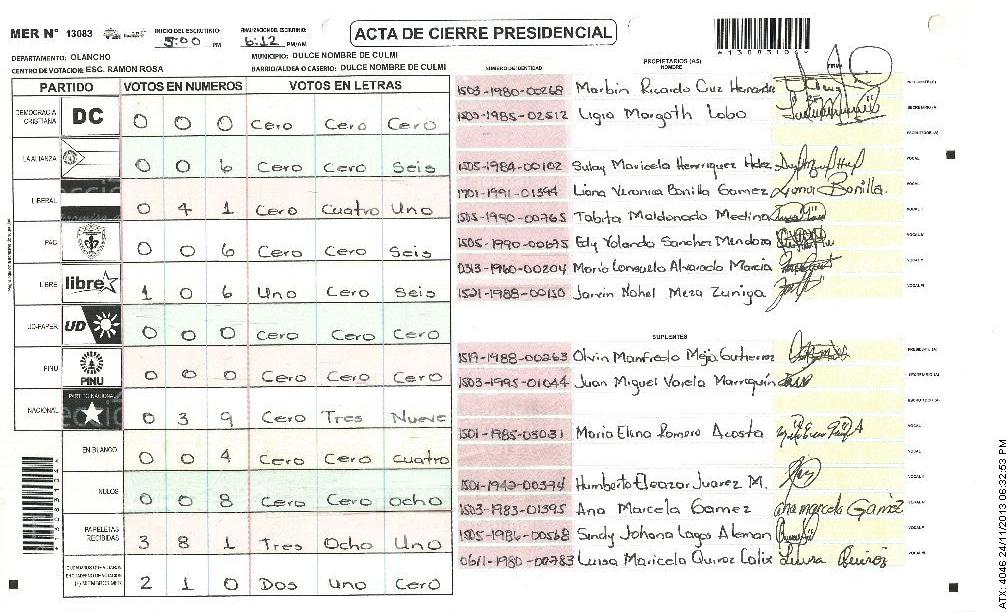 MER N° 13083
INICIO DEL ESCRUTINIO: 5:00 PM
FINALIZACION DEL ESCRUTINIO: 6:12 PM/AM
ACTA DE CIERRE PRESIDENCIAL
DEPARTAMENTO: OLANCHO
MUNICIPIO: DULCE NOMBRE DE CULMI
CENTRO DE VOTACION: ESC. RAMON ROSA
BARRIO/ALDEA O CASERIO: DULCE NOMBRE DE CULMI
PARTIDO VOTOS EN NUMEROS VOTOS EN LETRAS
DEMOCRACIA CRISTIANA DC 0 0 0 Cero Cero Cero
LA ALIANZA 0 0 6 Cero Cero Seis
LIBERAL 0 4 1 Cero Cuatro Uno
PAC 0 0 6 Cero Cero Seis
LIBRE libre 1 0 6 Uno Cero Seis
UD-FAPER UD 0 0 0 Cero Cero Cero
PINU PINU 0 0 0 Cero Cero Cero
NACIONAL PARTIDO NACIONAL 0 3 9 Cero Tres Nueve
EN BLANCO 0 0 4 Cero Cero Cuatro
NULOS 0 0 8 Cero Cero Ocho
PAPELETAS RECIBIDAS 3 8 1 Tres Ocho Uno
(+) MIEMBROS MER 2 1 0 Dos Uno Cero
NUMERO DE IDENTIDAD
PROPIETARIOS (AS)
NOMBRE
FIRMA
1503-1980-00268 Marbin Ricardo Cruz Hernandez
1503-1985-02512 Ligia Margoth Lobo
SECRETARIO (A)
1505-1984-00102 Sulay Maricela Henrriquez Hdez
VOCAL
1701-1991-01394 Liana Veronica Bonilla Gomez
VOCAL
1505-1990-00765 Tabita Maldonado Medina
1505-1990-00695 Edy Yolanda Sanchez Mendoza
0313-1960-00204 Maria Consuelo Alvarado Murcia
1521-1988-00150 Jarvin Nohel Meza Zuniga
SUPLENTES
1517-1988-00263 Olvin Manfredo Mejia Gutierrez
1503-1995-01044 Juan Miguel Varela Marroquin
1501-1985-03031 Maria Elena Romero Acosta
VOCAL
1501-1942-00394 Humberto Eleazar Juarez M.
1503-1983-01395 Ana Marcela Gomez
1505-1986-00568 Sindy Johana Lagos Aleman
0611-1980-00783 Luisa Maricela Quiroz Calix
ATX: 4046 24/11/2013 06:32:53 PM